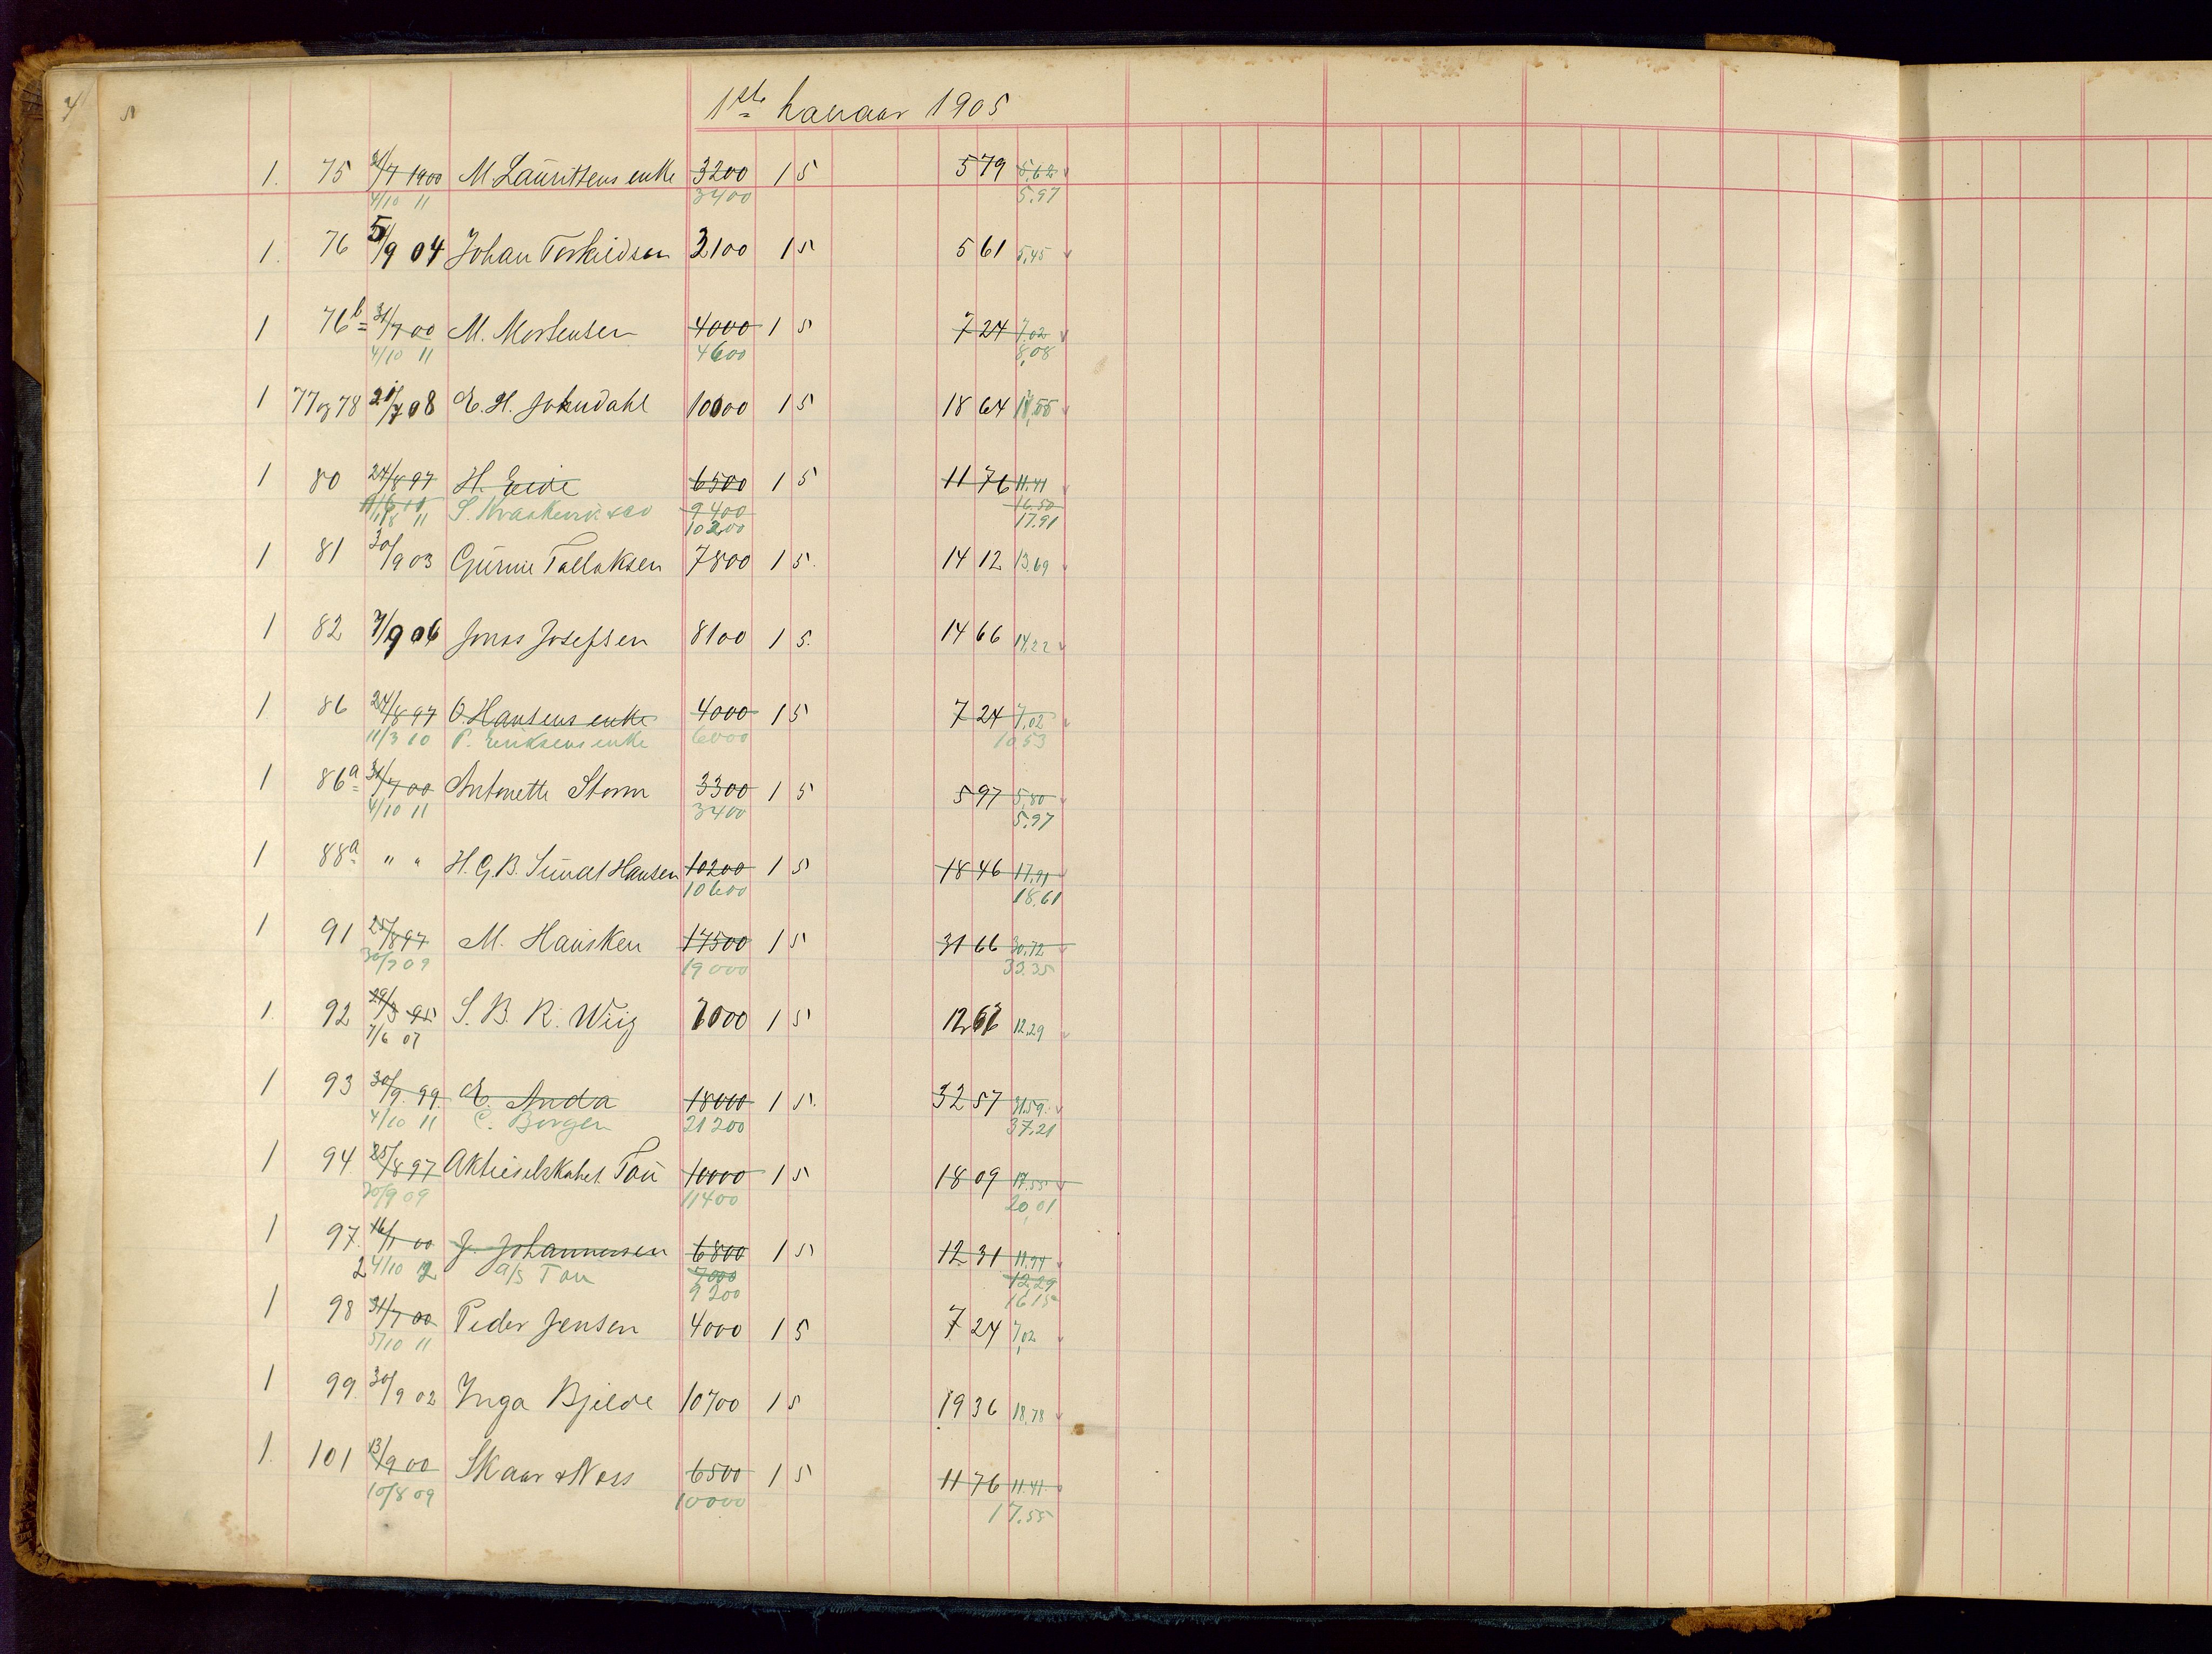 1ste halvaar 1905
1. 75 31/7 1900 M. Lauritsens enke 3200 1 5 5 79 5,62
4/10 11 3400 5,97
1. 76 5/9 04 Johan Torkildsen 3100 1 5 5 61 5,45
1 76b 31/7 00 M. Mortensen 4000 1 5 7 24 7,02
4/10 11 4600 8,08
1 77 og 78 E. H. 1 5 18 64
1 80 24/8 97 H. Eide 6500 1 5 11 76 11,41
9400 16,50
11/8 11 10200 17,91
1 81 30/9 03 Gurine Tallaksen 7800 1 5. 14 12 13,69
1 82 7/9 06 Jonas Josefsen 8100 1 5. 14 66 14,22
1 86 24/8 97 O. Hansens enke 4000 1 5 7 24 7,02
11/3 10 P. Eriksens enke 6000 10,53
1 86a 31/7 00 Antonette Storm 3300 1 5 5 97 5,80
4/10 11 3400 5,97
1 88a " " H. G. B. Sundt Hansen 10200 1 5 18 46 17,91
10600 18,61
1 91 25/8 97 M. Hausken 17500 1 5 31 66 30,72
30/9 09 19000 33,35
1. 92 29/3 95 S. B. R. Wiig 7000 1 5 12 67 12,29
7/6 07
1 93 30/9 99. E. Anda 18000 1 5. 32 57 31,59
4/10 11 C. Borgen 21200 37,21
1 94 25/8 97 Aktieselskabet Tou 10000 1 5 18 09 17,55
30/9 09 11400 20,01
1 97. J. Johannessen 6800 1 5 12 31 11,94
A/S Tou 7000 12,29
9200 16,15
1 98 31/7 00 Peder Jensen 4000 1 5 7 24 7,02
5/10 11
1 99. 30/9 02 Inga Bjelde 10700 1 5 19 36 18,78
1. 101 13/9 00 Skaar & Næss 6500 1 5 11 76 11,41
10/8 09 10000 17,55